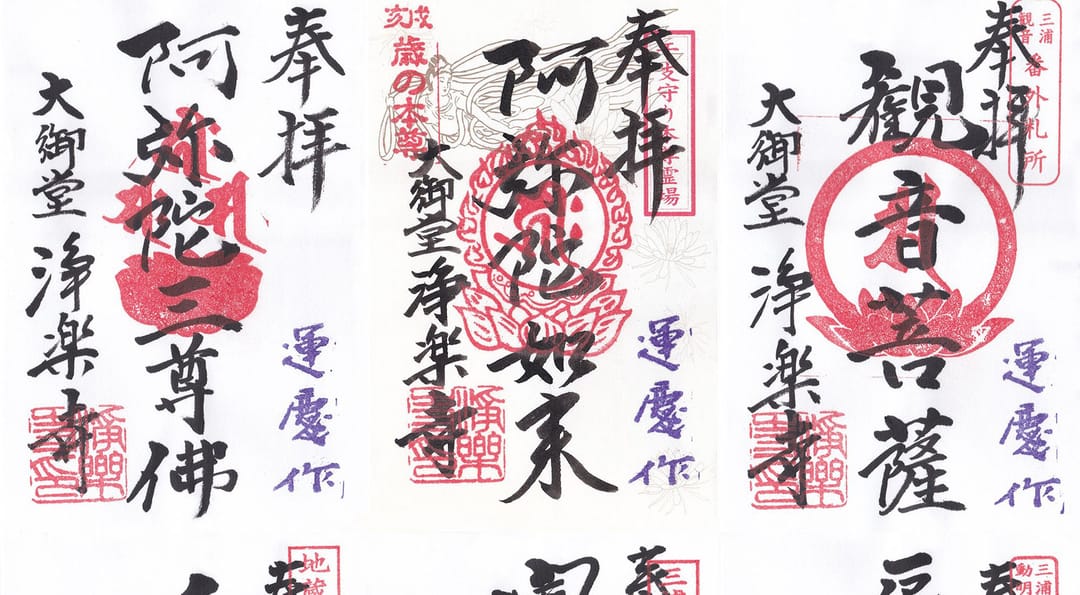 奉拝
阿弥陀三尊佛
大御堂 浄楽寺
運慶作
浄樂寺印
戌亥歳の本尊
奉拝
十二支守り本尊霊場
阿弥陀如来
大御堂 浄楽寺
運慶作
浄樂
三浦観音番外札所
奉拝
観音菩薩
大御堂 浄楽寺
運慶作
浄樂
地蔵
奉
三浦
奉
三浦